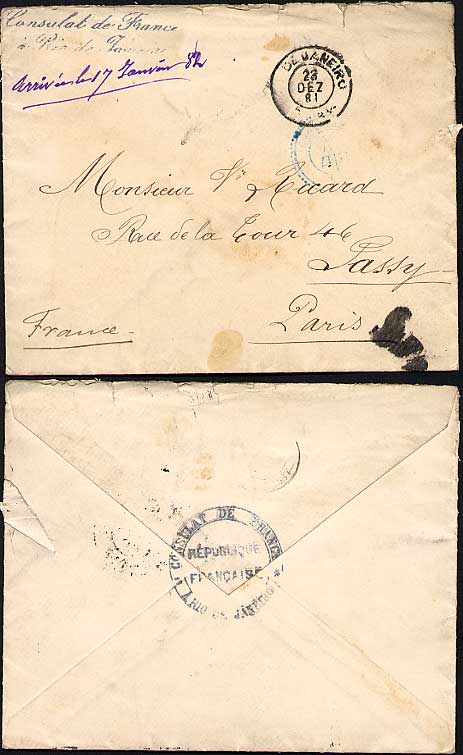 Consulat de France
à Rio de Janeiro
Arrivée le 17 Janvier 82
DE JANEIRO
23
DEZ
81
Monsieur Vr Ricard
Rue de la Tour 46
Passy
Paris
France
CONSULAT DE FRANCE
RÉPUBLIQUE
FRANÇAISE
A RIO DE JANEIRO